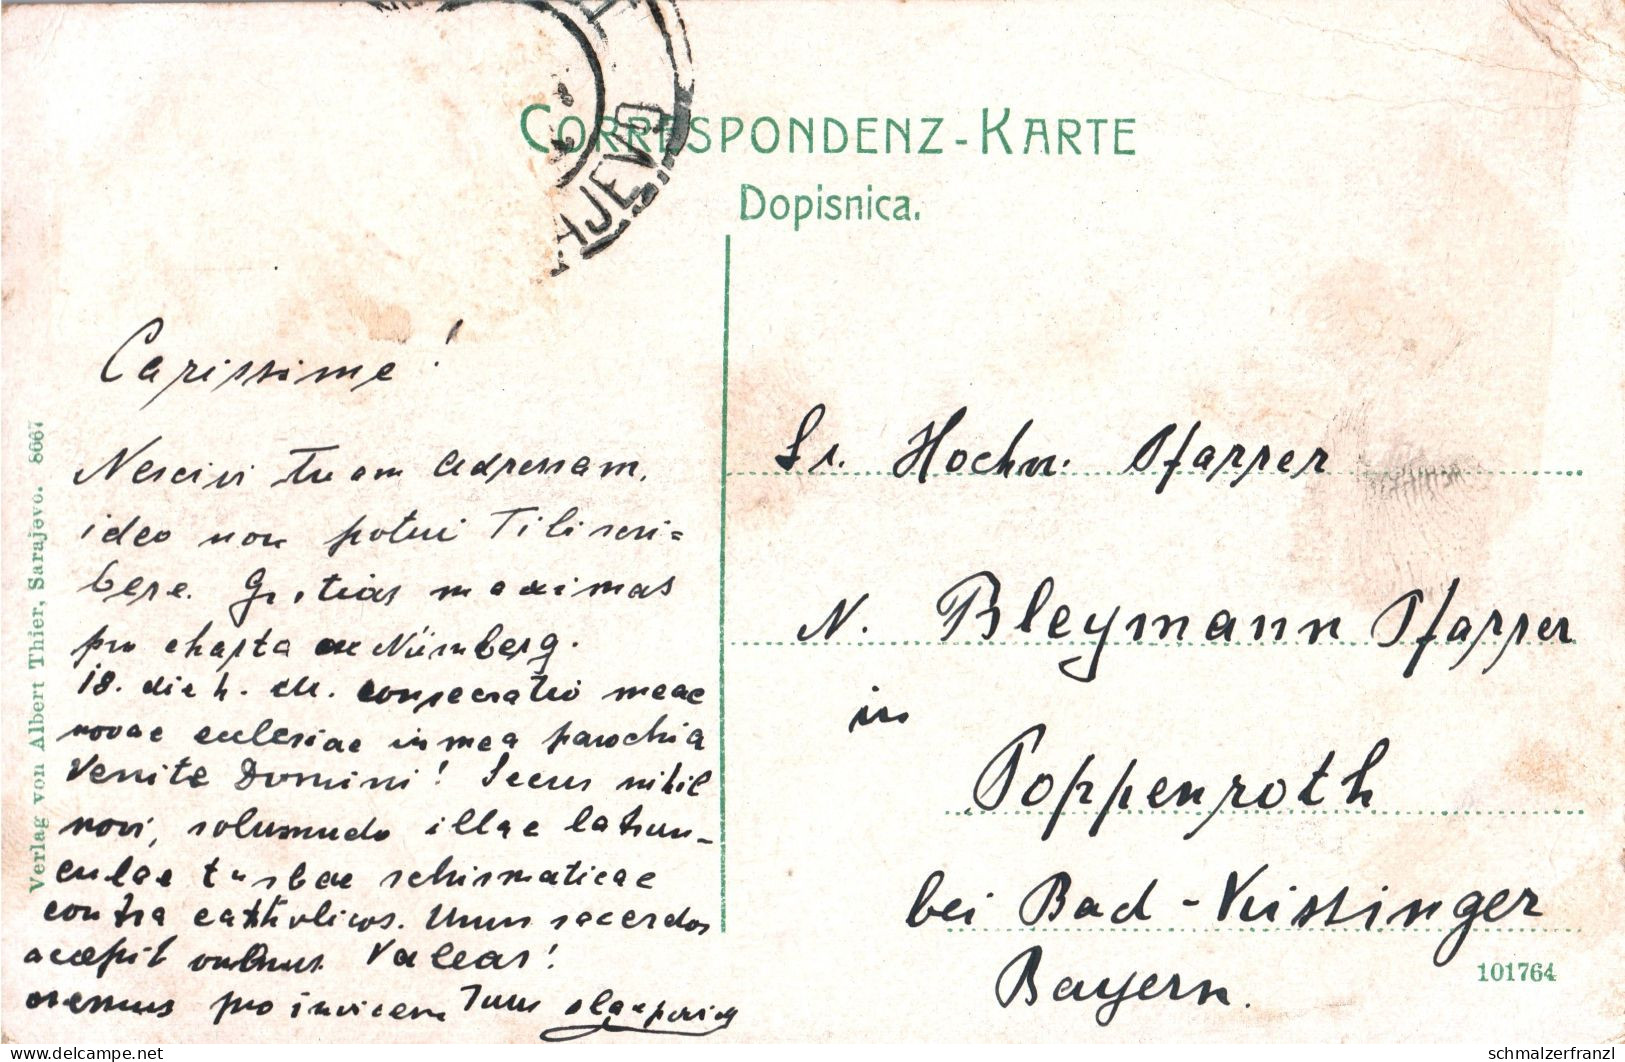 CORRESPONDENZ-KARTE
Dopisnica.
AJEVO
Verlag von Albert Thier, Sarajevo. 8667
Carissime!
Nescivi Tuam adressam,
ideo non potui Tibi scri=
bere. Gratias maximas
pro charta ex Nürnberg.
18. die h. m. consecratio meae
novae ecclesiae in mea parochia
Venite Domini! Secus nihil
novi, solummodo illae latrun-
culae turbae schismaticae
contra catholicos. Unus sacerdos
accepit vulnus. Valeas!
oremus pro invicem Tuus
Sr. Hochw. Pfarrer
N. Bleymann Pfarrer
in
Poppenroth
bei Bad-Kissingen
Bayern.
101764
© www.delcampe.net
schmalzerfranzl